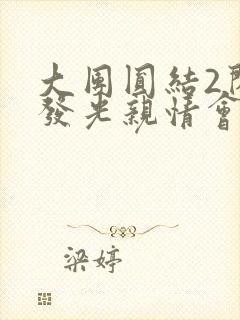 大团圓結2
發光親情會
梁婷